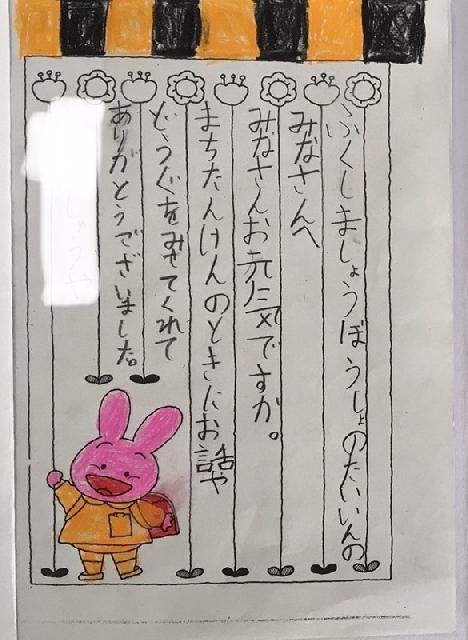 ふくしましょうぼうしょのたいいんの
みなさんへ
みなさんお元気ですか。
まちたんけんのときにお話や
どうぐをみせてくれて
ありがとうございました。